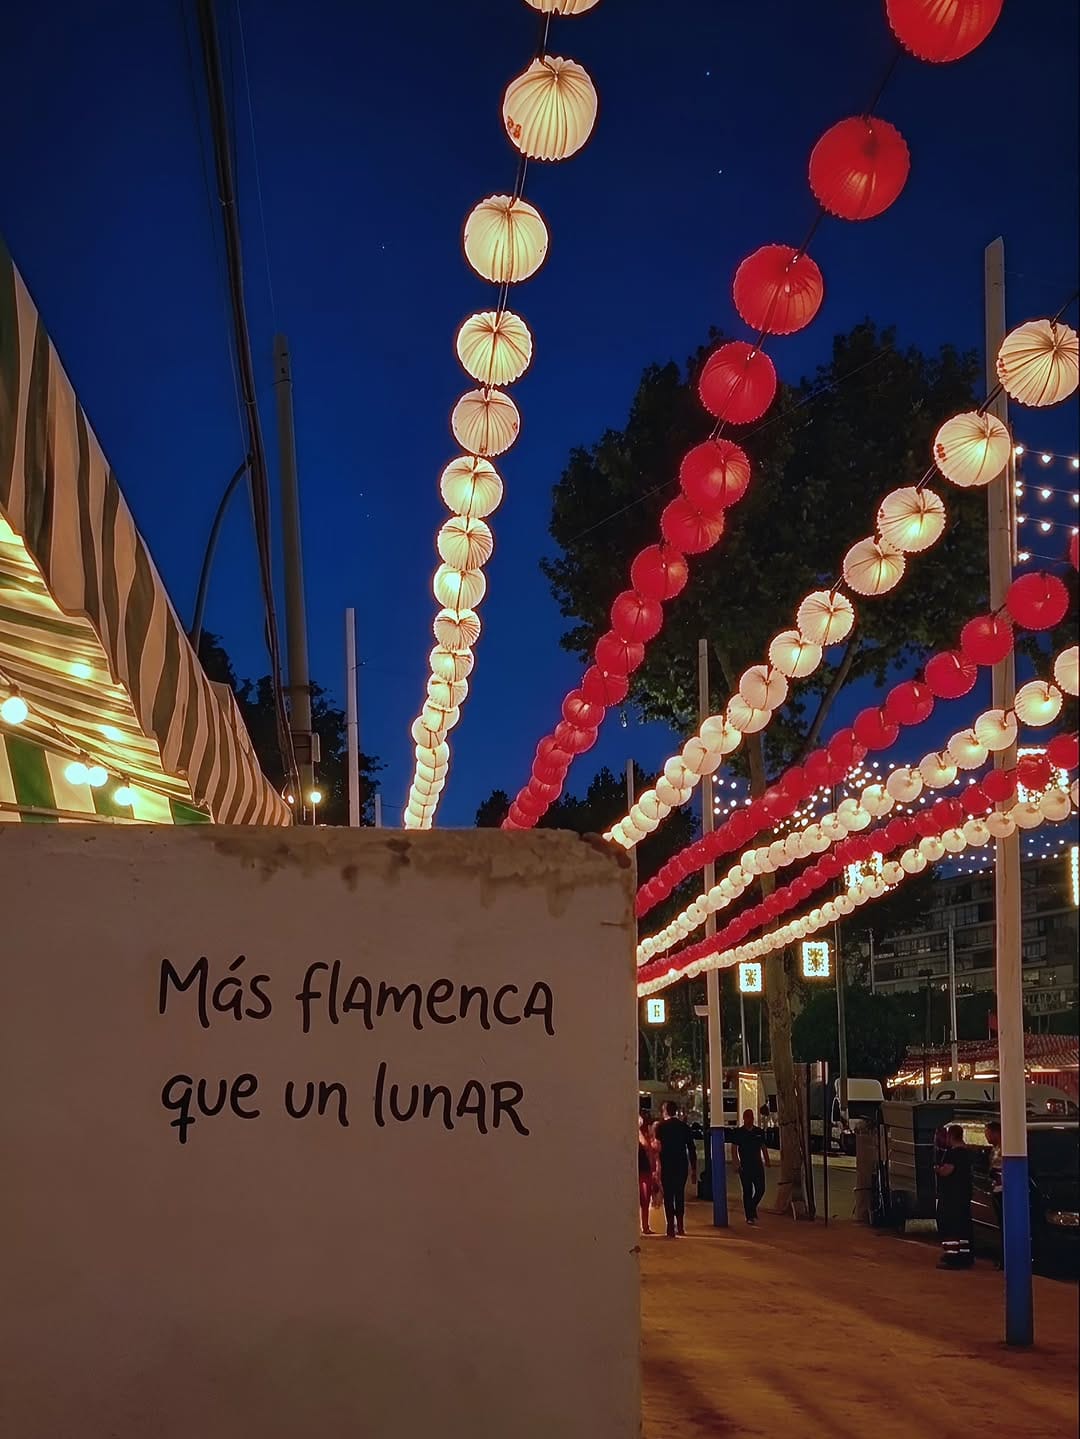 Más flamenca
que un lunar